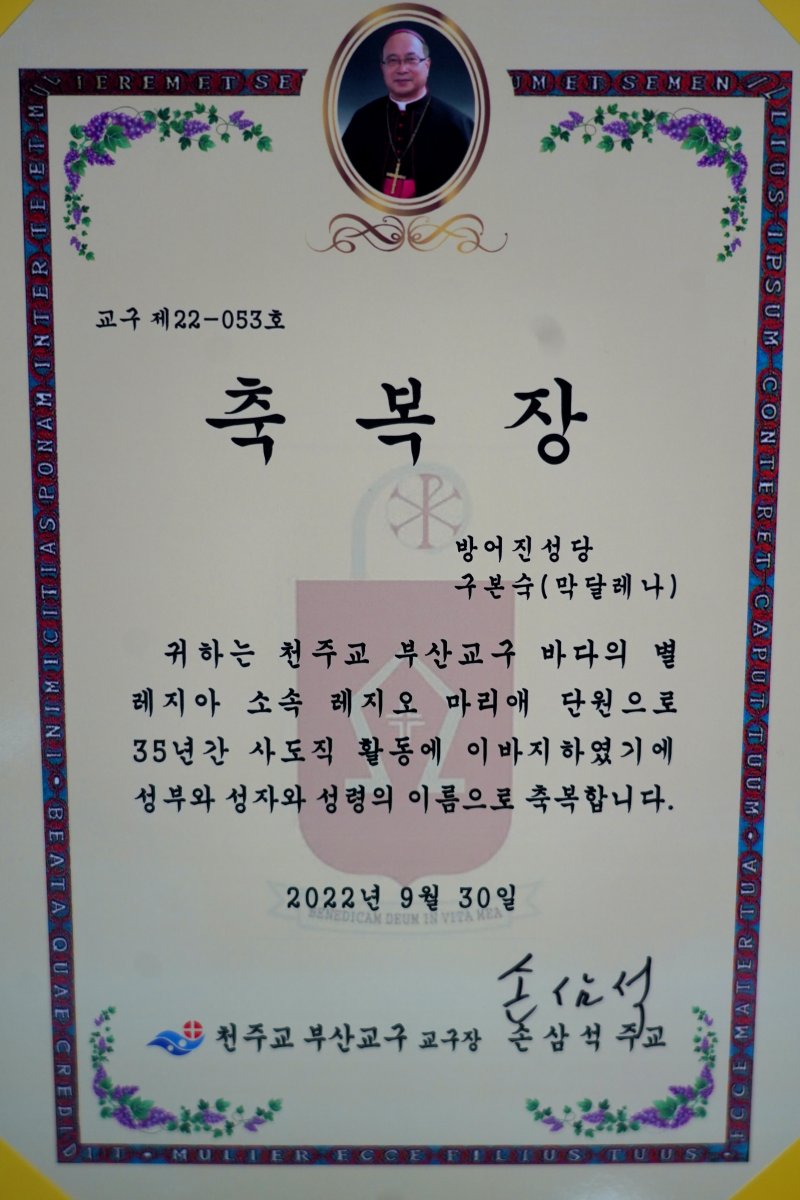 교구 제22-053호
축복장
방어진성당
구본숙(막달레나)
귀하는 천주교 부산교구 바다의 별
레지아 소속 레지오 마리애 단원으로
35년간 사도직 활동에 이바지하였기에
성부와 성자와 성령의 이름으로 축복합니다.
2022년 9월 30일
BENEDICAM DEUM IN VITA MEA
손삼석
천주교 부산교구 교구장 손삼석 주교
INIMICITIAS PONAM INTER TE ET MULIEREM ET SE
UM ET SEMEN ILLIUS IPSUM CONTERET CAPUT TUUM • ECCE MATER TUA •
MULIER ECCE FILIUS TUUS
BEATA QUAE CREDIDIT •